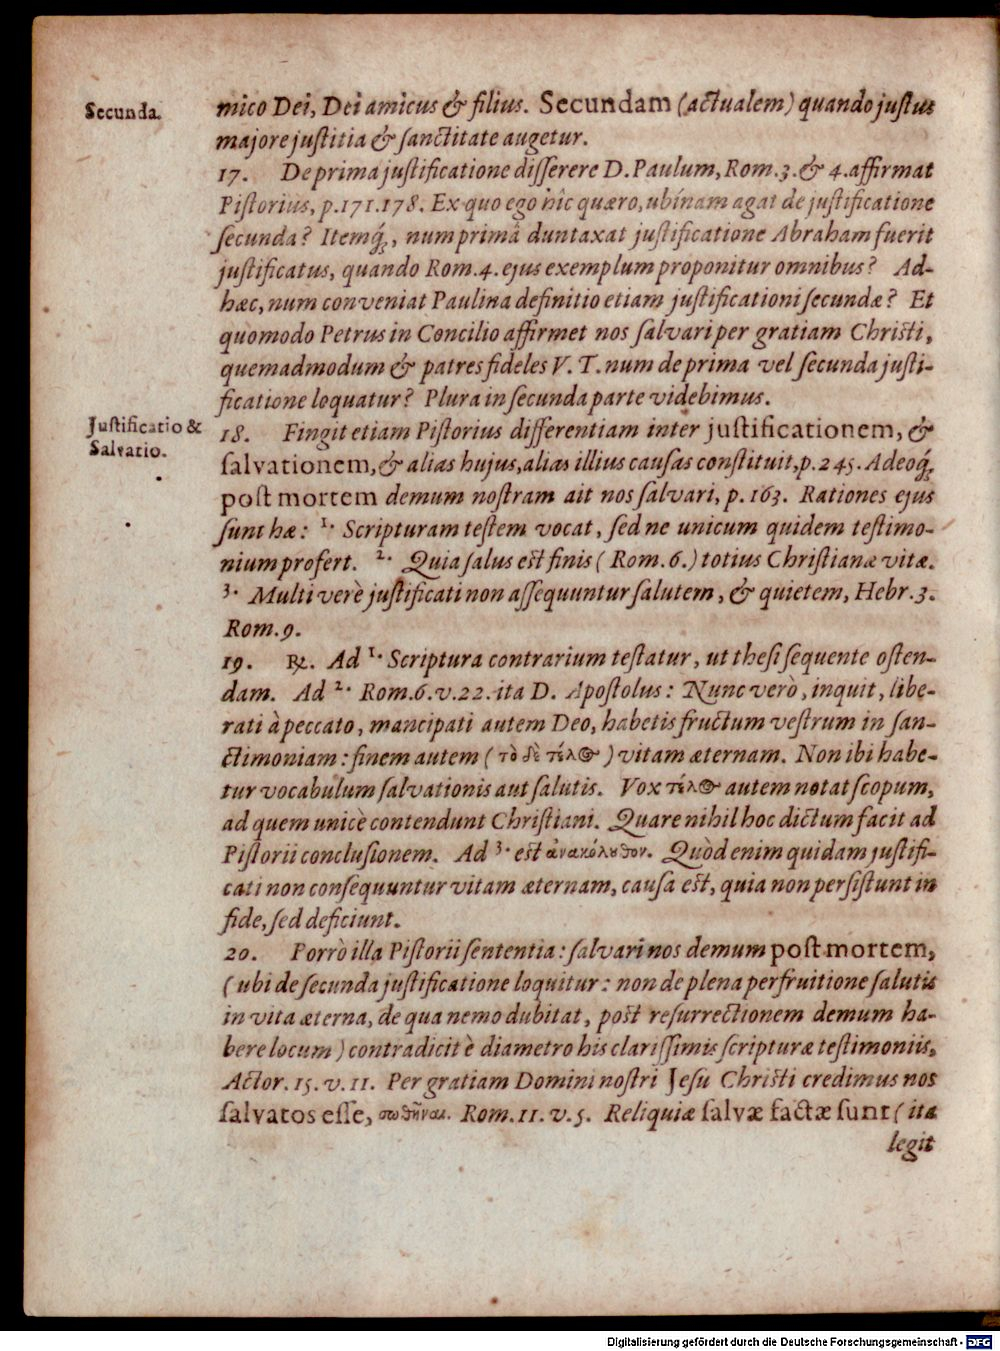 Secunda.
mico Dei, Dei amicus & filius. Secundam (actualem) quando justus
majore justitia & sanctitate augetur.
17. De prima justificatione disserere D. Paulum, Rom. 3. & 4. affirmat
Pistorius, p. 171. 178. Ex quo ego hîc quæro, ubinam agat de justificatione
secunda? Itemq́;, num primâ duntaxat justificatione Abraham fuerit
justificatus, quando Rom. 4. ejus exemplum proponitur omnibus? Ad-
hæc, num conveniat Paulina definitio etiam justificationi secundæ? Et
quomodo Petrus in Concilio affirmet nos salvari per gratiam Christi,
quemadmodum & patres fideles V. T. num de prima vel secunda justi-
ficatione loquatur? Plura in secunda parte videbimus.
Justificatio &
Salvatio.
18. Fingit etiam Pistorius differentiam inter justificationem, &
salvationem, & alias hujus, alias illius causas constituit, p. 245. Adeoq́;
post mortem demum nostram ait nos salvari, p. 163. Rationes ejus
sunt hæ: 1. Scripturam testem vocat, sed ne unicum quidem testimo-
nium profert. 2. Quia salus est finis (Rom. 6.) totius Christianæ vitæ.
3. Multi verè justificati non assequuntur salutem, & quietem, Hebr. 3.
Rom. 9.
19. ℞. Ad 1. Scriptura contrarium testatur, ut thesi sequente osten-
dam. Ad 2. Rom. 6. v. 22. ita D. Apostolus: Nunc verò, inquit, libe-
rati à peccato, mancipati autem Deo, habetis fructum vestrum in san-
ctimoniam: finem autem (τὸ δὲ τέλος) vitam æternam. Non ibi habe-
tur vocabulum salvationis aut salutis. Vox τέλος autem notat scopum,
ad quem unicè contendunt Christiani. Quare nihil hoc dictum facit ad
Pistorii conclusionem. Ad 3. est ἀνακόλουθον. Quòd enim quidam justifi-
cati non consequuntur vitam æternam, causa est, quia non persistunt in
fide, sed deficiunt.
20. Porrò illa Pistorii sententia: salvari nos demum post mortem,
(ubi de secunda justificatione loquitur: non de plena perfruitione salutis
in vita æterna, de qua nemo dubitat, post resurrectionem demum ha-
bere locum) contradicit è diametro his clarissimis scripturæ testimoniis,
Actor. 15. v. 11. Per gratiam Domini nostri Jesu Christi credimus nos
salvatos esse, σωθῆναι. Rom. 11. v. 5. Reliquiæ salvæ factæ sunt (ita
legit
Digitalisierung gefördert durch die Deutsche Forschungsgemeinschaft - DFG